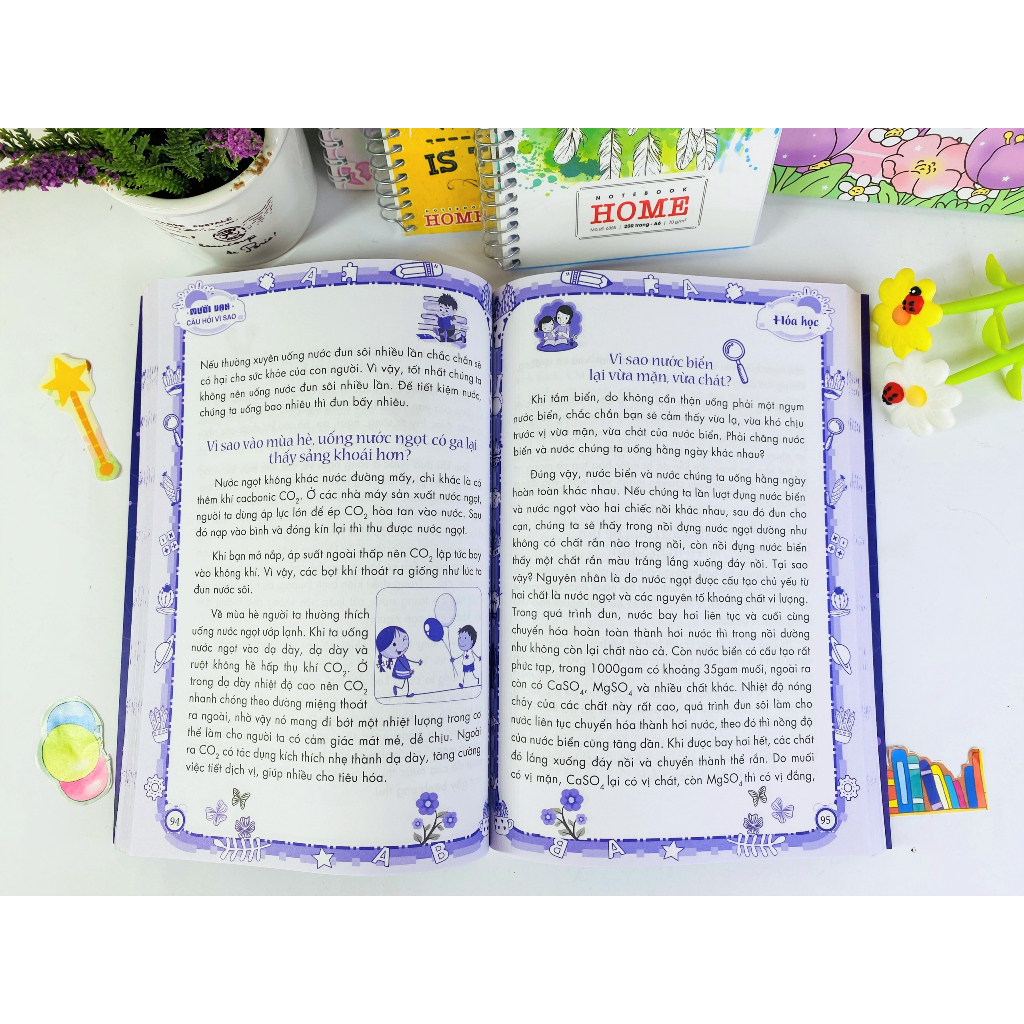 IS
NOTEBOOK
HOME
NOTEBOOK
HOME
Mã số 6388 | 200 trang - A6 | 70 g/m²
MƯỜI VẠN
CÂU HỎI VÌ SAO
Nếu thường xuyên uống nước đun sôi nhiều lần chắc chắn sẽ
có hại cho sức khỏe của con người. Vì vậy, tốt nhất chúng ta
không nên uống nước đun sôi nhiều lần. Để tiết kiệm nước,
chúng ta uống bao nhiêu thì đun bấy nhiêu.
Vì sao vào mùa hè, uống nước ngọt có ga lại
thấy sảng khoái hơn?
Nước ngọt không khác nước đường mấy, chỉ khác là có
thêm khí cacbonic CO₂. Ở các nhà máy sản xuất nước ngọt,
người ta dùng áp lực lớn để ép CO₂ hòa tan vào nước. Sau
đó nạp vào bình và đóng kín lại thì thu được nước ngọt.
Khi bạn mở nắp, áp suất ngoài thấp nên CO₂ lập tức bay
vào không khí. Vì vậy, các bọt khí thoát ra giống như lúc ta
đun nước sôi.
Về mùa hè người ta thường thích
uống nước ngọt ướp lạnh. Khi ta uống
nước ngọt vào dạ dày, dạ dày và
ruột không hề hấp thụ khí CO₂. Ở
trong dạ dày nhiệt độ cao nên CO₂
nhanh chóng theo đường miệng thoát
ra ngoài, nhờ vậy nó mang đi bớt một nhiệt lượng trong cơ
thể làm cho người ta có cảm giác mát mẻ, dễ chịu. Ngoài
ra CO₂ có tác dụng kích thích nhẹ thành dạ dày, tăng cường
việc tiết dịch vị, giúp nhiều cho tiêu hóa.
94
Hóa học
Vì sao nước biển
lại vừa mặn, vừa chát?
Khi tắm biển, do không cẩn thận uống phải một ngụm
nước biển, chắc chắn bạn sẽ cảm thấy vừa lạ, vừa khó chịu
trước vị vừa mặn, vừa chát của nước biển. Phải chăng nước
biển và nước chúng ta uống hằng ngày khác nhau?
Đúng vậy, nước biển và nước chúng ta uống hằng ngày
hoàn toàn khác nhau. Nếu chúng ta lần lượt đựng nước biển
và nước ngọt vào hai chiếc nồi khác nhau, sau đó đun cho
cạn, chúng ta sẽ thấy trong nồi đựng nước ngọt dường như
không có chất rắn nào trong nồi, còn nồi đựng nước biển
thấy một chất rắn màu trắng lắng xuống đáy nồi. Tại sao
vậy? Nguyên nhân là do nước ngọt được cấu tạo chủ yếu từ
hai chất là nước ngọt và các nguyên tố khoáng chất vi lượng.
Trong quá trình đun, nước bay hơi liên tục và cuối cùng
chuyển hóa hoàn toàn thành hơi nước thì trong nồi dường
như không còn lại chất nào cả. Còn nước biển có cấu tạo rất
phức tạp, trong 1000gam có khoảng 35gam muối, ngoài ra
còn có CaSO₄, MgSO₄ và nhiều chất khác. Nhiệt độ nóng
chảy của các chất này rất cao, quá trình đun sôi làm cho
nước liên tục chuyển hóa thành hơi nước, theo đó thì nồng độ
của nước biển cũng tăng dần. Khi được bay hơi hết, các chất
đó lắng xuống đáy nồi và chuyển thành thể rắn. Do muối
có vị mặn, CaSO₄ lại có vị chát, còn MgSO₄ thì có vị đắng,
95